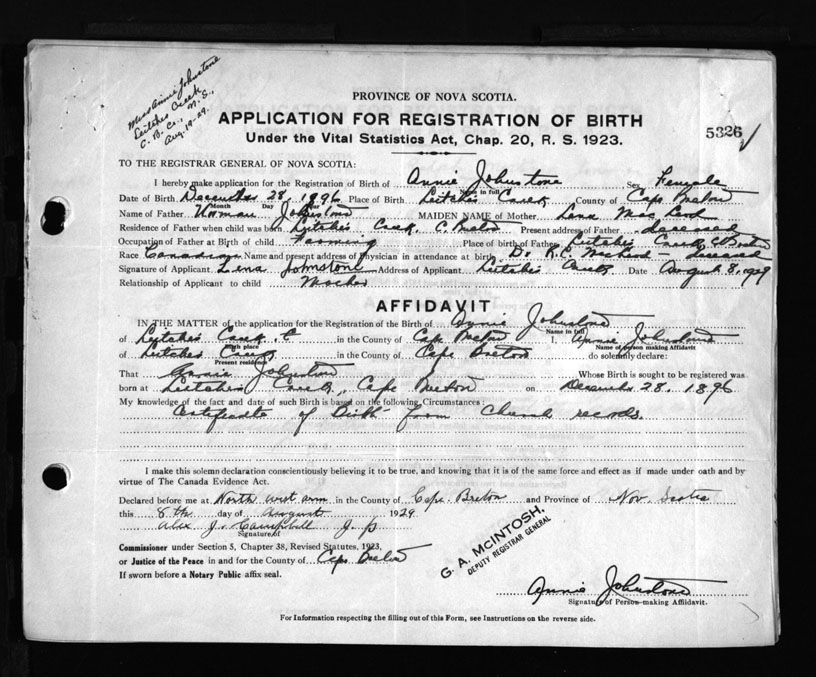 Miss Annie Johnstone
Leitches Creek
C. B. Co., N. S.,
Aug. 19-29.
PROVINCE OF NOVA SCOTIA.
APPLICATION FOR REGISTRATION OF BIRTH
Under the Vital Statistics Act, Chap. 20, R. S. 1923.
5326
TO THE REGISTRAR GENERAL OF NOVA SCOTIA:
I hereby make application for the Registration of Birth of Annie Johnstone Sex Female
Name in full
Date of Birth December 28, 1896 Place of Birth Leitches Creek County of Cape Breton
Month Day Year
Name of Father Norman Johnstone MAIDEN NAME of Mother Lena Mac Leod
Residence of Father when child was born Leitches Creek C. Breton Present address of Father deceased
Occupation of Father at Birth of child Farming Place of birth of Father Leitches Creek C Breton
Race Canadian Name and present address of Physician in attendance at birth Dr K.C. McLeod - deceased
Signature of Applicant Lena Johnstone Address of Applicant Leitches Creek Date August 8, 1929
Relationship of Applicant to child Mother
AFFIDAVIT
IN THE MATTER of the application for the Registration of the Birth of Annie Johnstone
Name in full
of Leitches Creek C in the County of Cape Breton I, Annie Johnstone
Birth place Name of person making Affidavit
of Leitches Creek in the County of Cape Breton do solemnly declare:
Present residence
That Annie Johnstone Whose Birth is sought to be registered was
born at Leitches Creek, Cape Breton on December 28, 1896
My knowledge of the fact and date of such Birth is based on the following Circumstances:
Certificate of Birth from Church records.
I make this solemn declaration conscientiously believing it to be true, and knowing that it is of the same force and effect as if made under oath and by
virtue of The Canada Evidence Act.
Declared before me at North west arm in the County of Cape Breton and Province of Nov. Scotia
this 8th day of August 1929
Alex J. Campbell J. P
Signature of
Commissioner under Section 5, Chapter 38, Revised Statutes, 1923,
or Justice of the Peace in and for the County of Cape Breton
If sworn before a Notary Public affix seal.
G. A. MCINTOSH,
DEPUTY REGISTRAR GENERAL
Annie Johnstone
Signature of Person making Affidavit.
For Information respecting the filling out of this Form, see Instructions on the reverse side.